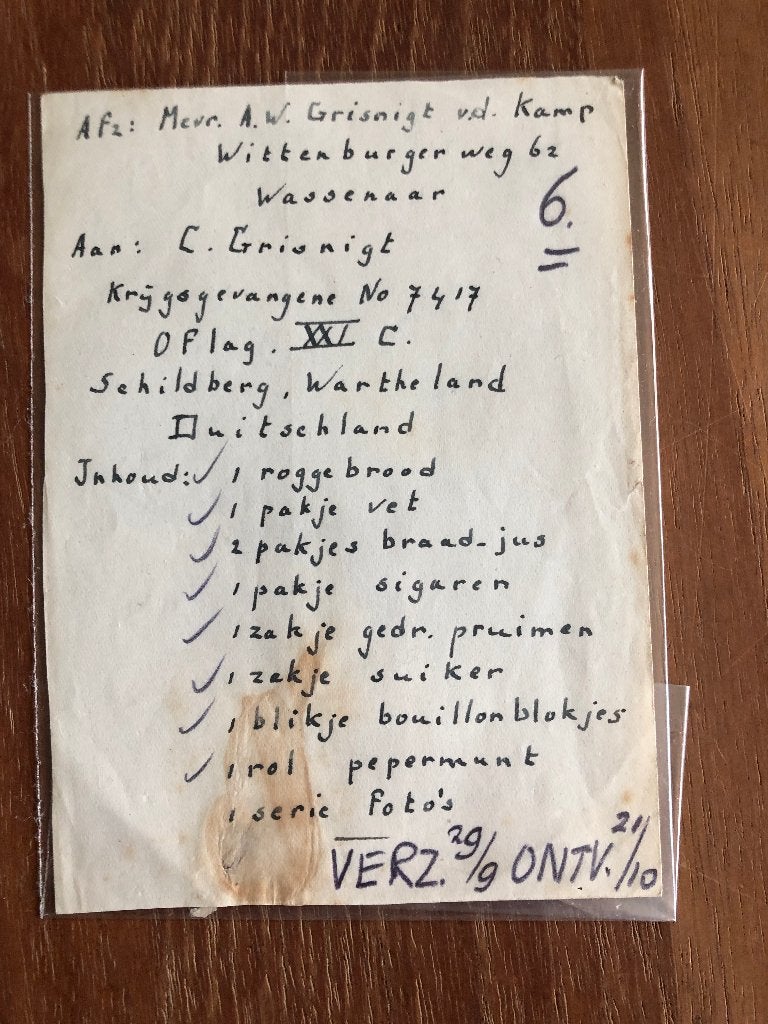 Afz: Mevr. A.W. Grisnigt v.d. Kamp
Wittenburgerweg 62
Wassenaar
6.
Aan: C. Grisnigt
Krijgsgevangene No 7417
OFlag. XXI C.
Schildberg, Wartheland
Duitschland
Inhoud: ✓ 1 roggebrood
✓ 1 pakje vet
✓ 2 pakjes braad-jus
✓ 1 pakje sigaren
✓ 1 zakje gedr. pruimen
✓ 1 zakje suiker
✓ 1 blikje bouillonblokjes
✓ 1 rol pepermunt
1 serie foto's
VERZ. 29/9 ONTV. 21/10